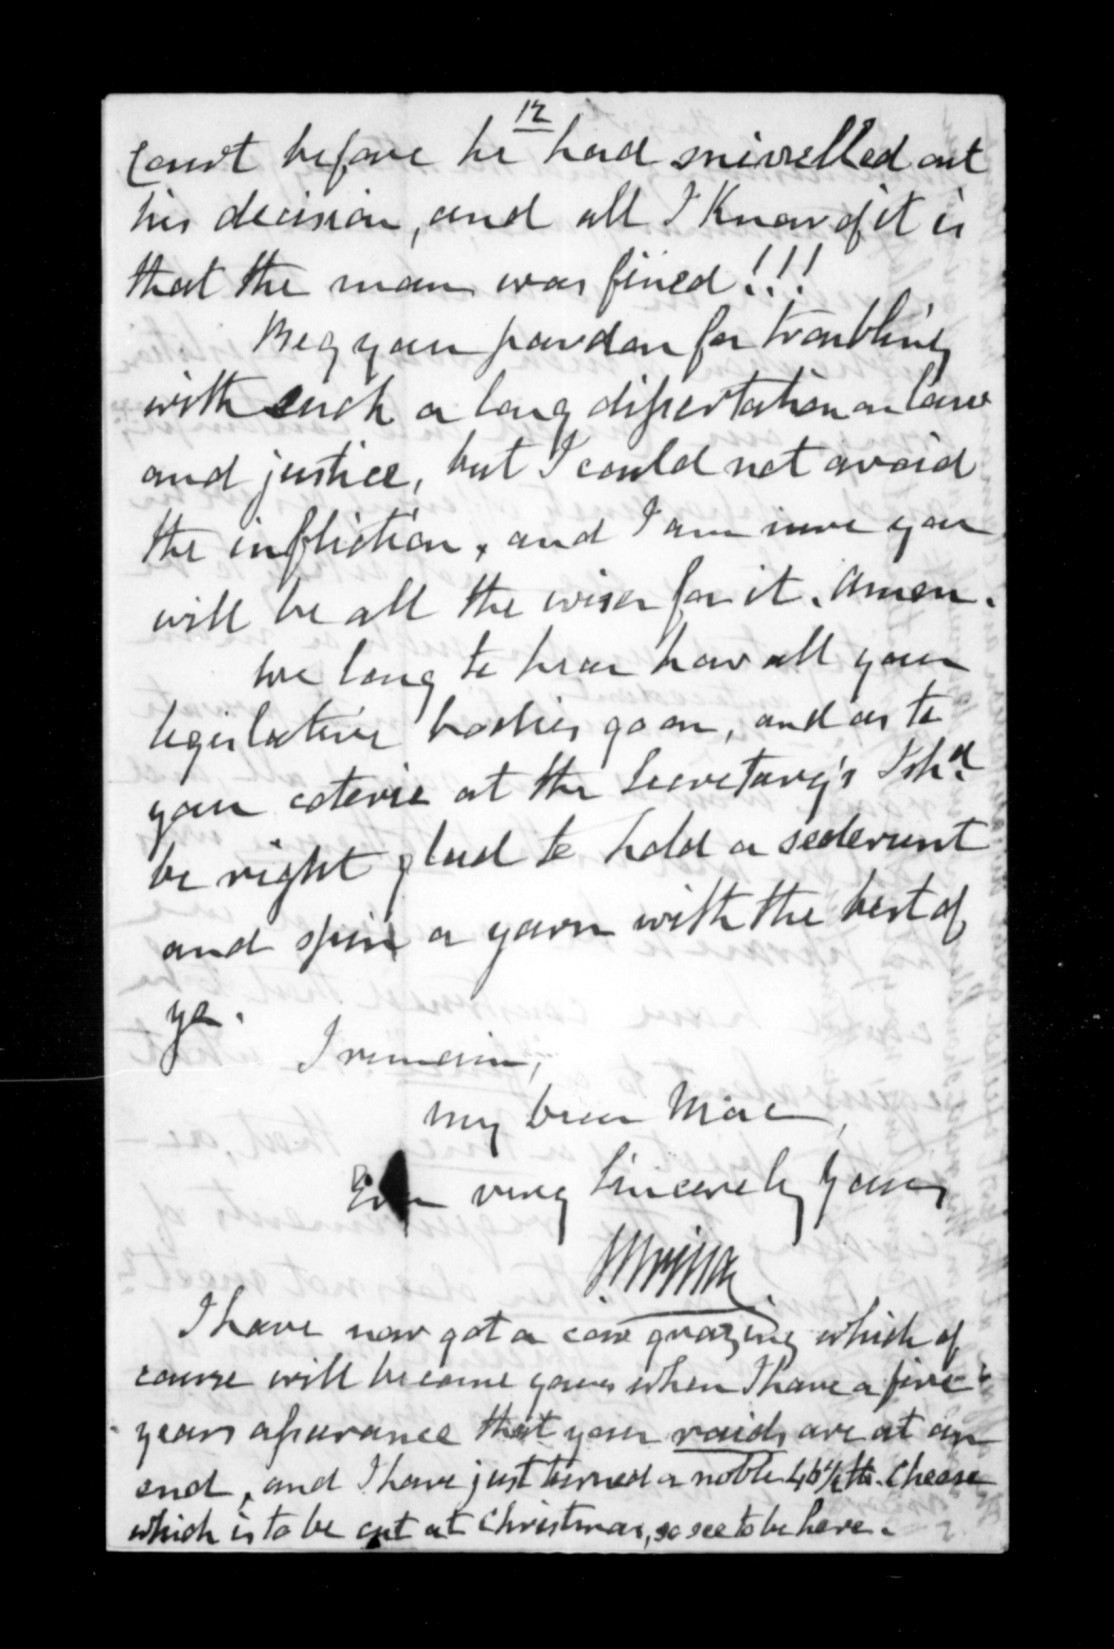 12
Court before he had snivelled out
his decision, and all I Know of it is
that the man was fined!!!
Beg your pardon for troubling
with such a long dissertation on law
and justice, but I could not avoid
the infliction, and I am sure you
will be all the wiser for it. Amen.
We long to hear how all your
legislative bodies go on, and as to
your coterie at the Secretary's I shd.
be right glad to hold a sederunt
and spin a yarn with the best of
ye.
I remain,
My Dear Mac,
Ever very Sincerely Yours
I have now got a cow grazing which of
course will become yours when I have a five
years assurance that your raids are at an
end, and I have just turned a noble 46½ lb. Cheese
which is to be cut at Christmas, so see to be here.